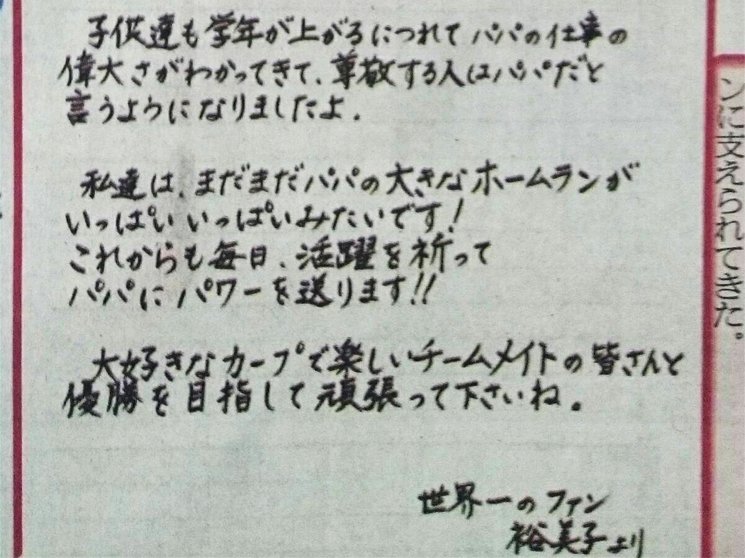 子供達も学年が上がるにつれてパパの仕事の
偉大さがわかってきて、尊敬する人はパパだと
言うようになりましたよ.
私達は、まだまだパパの大きなホームランが
いっぱいいっぱいみたいです!
これからも毎日、活躍を祈って
パパにパワーを送ります!!
大好きなカープで楽しいチームメイトの皆さんと
優勝を目指して頑張って下さいね。
世界一のファン
裕美子より
ンに支えられてきた。